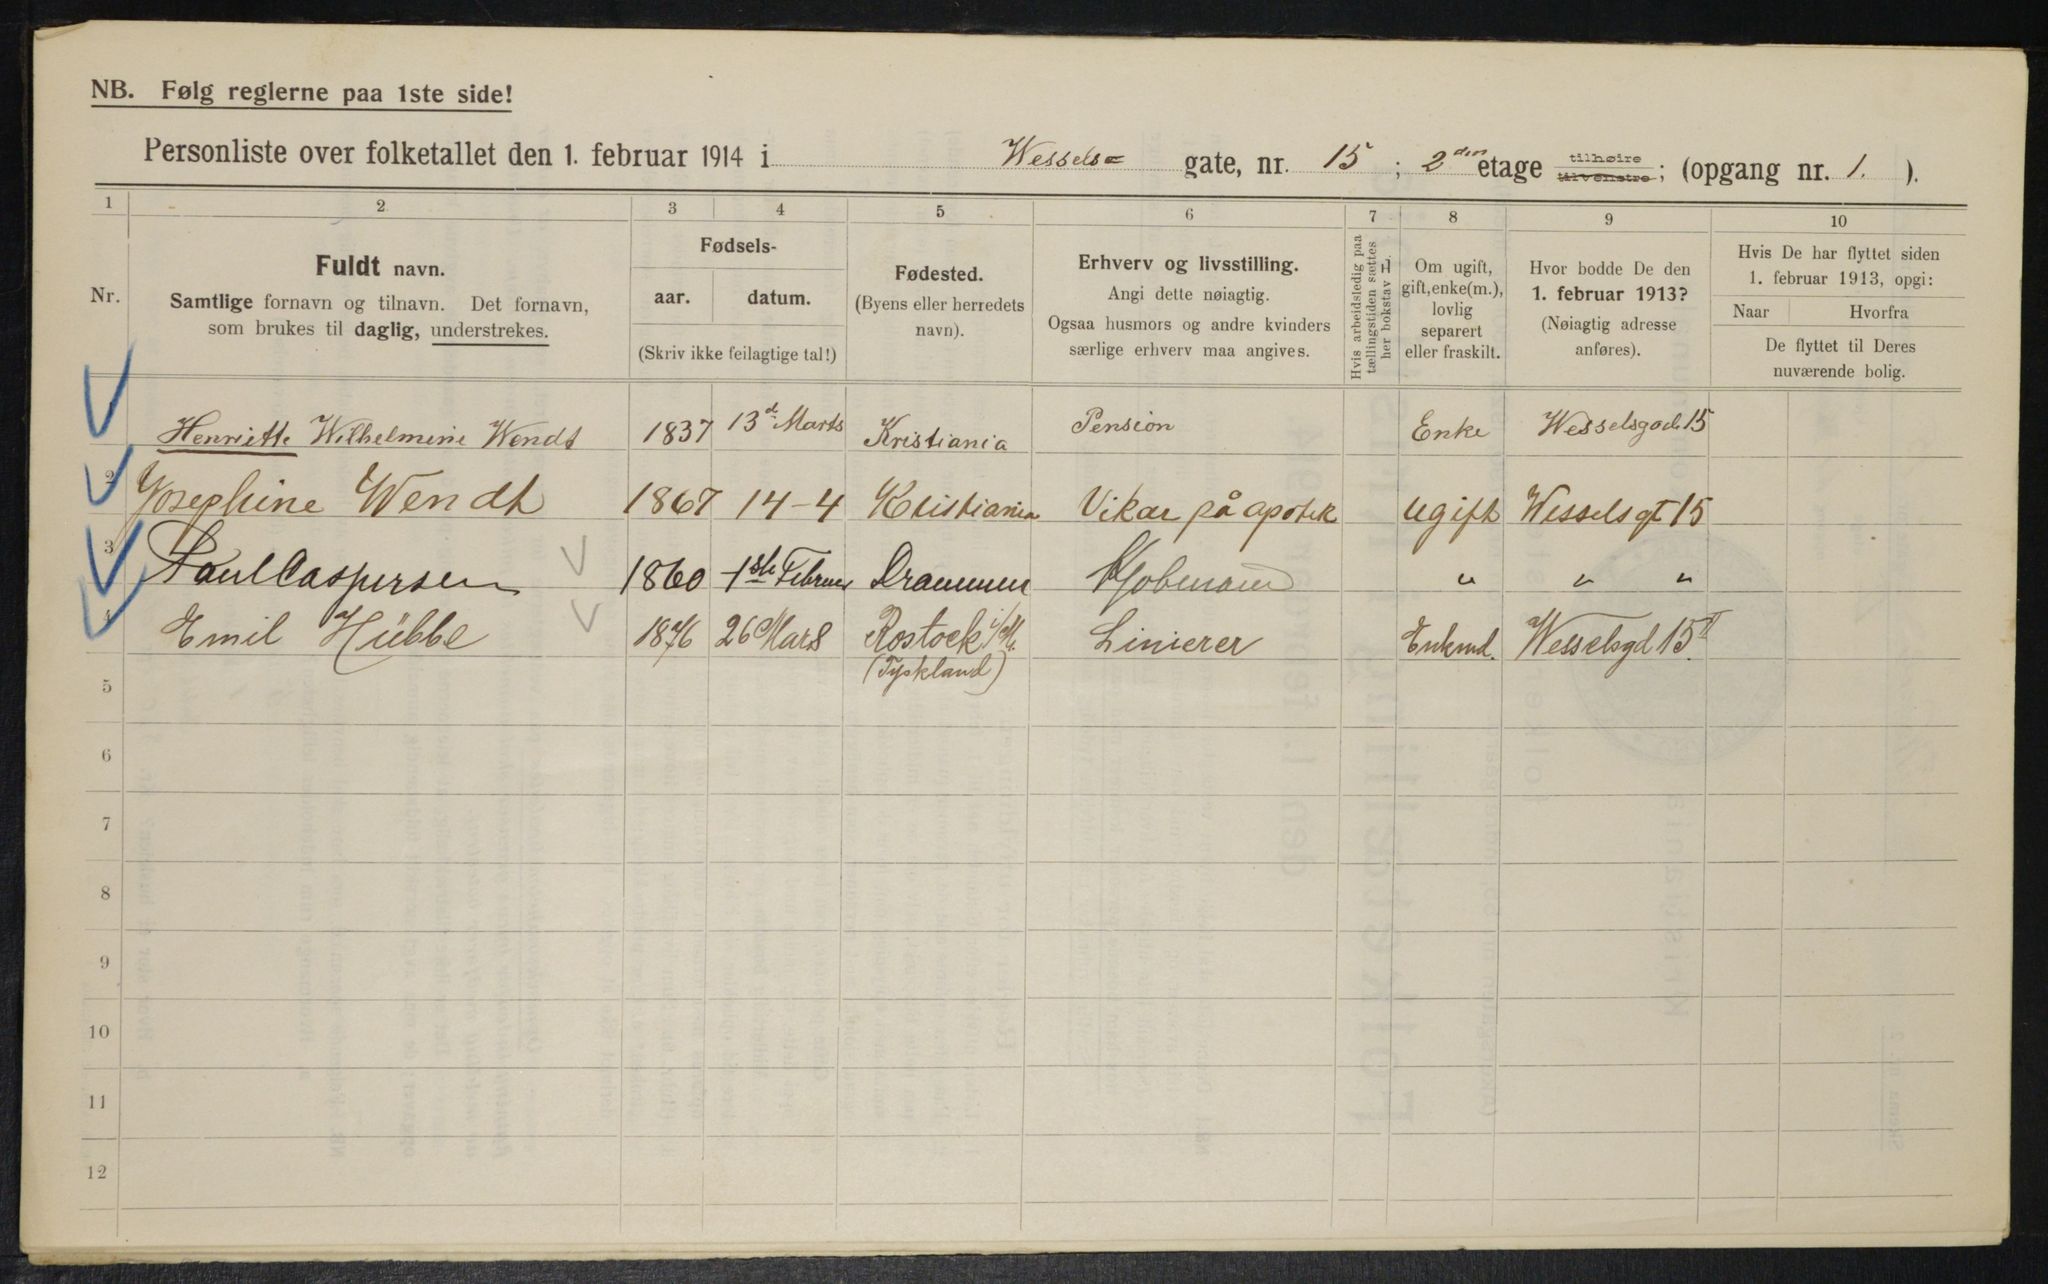 NB. Følg reglerne paa 1ste side!
Personliste over folketallet den 1. februar 1914 i Wessels= gate, nr. 15; 2den etage tilhøire tilvenstre; (opgang nr. 1.).
1 2 3 4 5 6 7 8 9 10
Nr.
Fuldt navn.
Samtlige fornavn og tilnavn. Det fornavn,
som brukes til daglig, understrekes.
Fødsels-
aar. datum.
(Skriv ikke feilagtige tal!)
Fødested.
(Byens eller herredets
navn).
Erhverv og livsstilling.
Angi dette nøiagtig.
Ogsaa husmors og andre kvinders
særlige erhverv maa angives.
Hvis arbeidsledig paa
tællingstiden sættes
her bokstav L.
Om ugift,
gift, enke(m.),
lovlig
separert
eller fraskilt.
Hvor bodde De den
1. februar 1913?
(Nøiagtig adresse
anføres).
Hvis De har flyttet siden
1. februar 1913, opgi:
Naar Hvorfra
De flyttet til Deres
nuværende bolig.
Henriette Wilhelmine Wendt 1837 13d Marts Kristiania Pension Enke Wesselsgad. 15
2 Josephine Wendt 1867 14-4 Kristiania Vikar på apotek ugift Wesselsgt 15
3 Paul Caspersen 1860 1ste Februar Drammen Kjøbmand " " "
4 Emil Hübbe 1876 26 Mars Rostock i/M. Linierer Enkmd. Wesselsgd 15 II
(Tyskland)
5
6
7
8
9
10
11
12